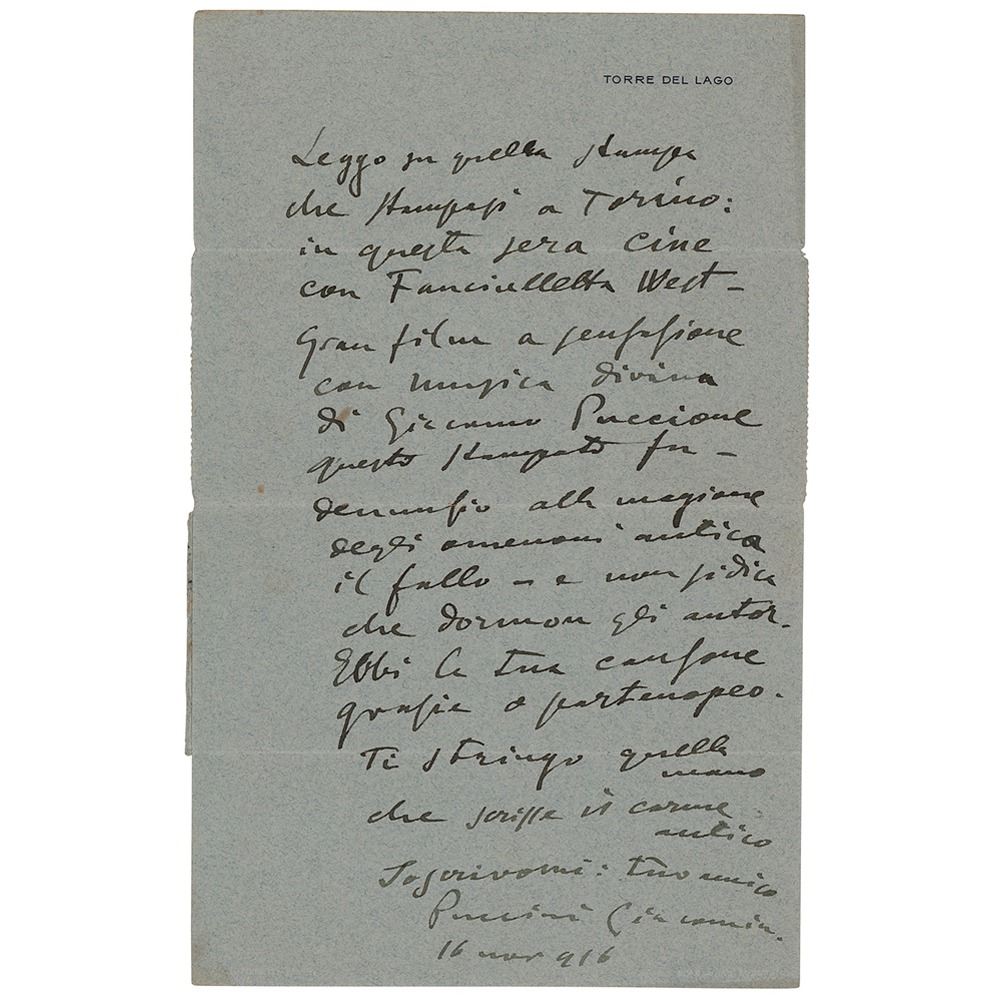 TORRE DEL LAGO
Leggo su quella stampa
che stampasi a Torino:
in questa sera cine
con Fanciulletta West –
Gran film a sensasione
con musica divina
di Giacomo Puccione
questo stampato fu –
denunsio alla magione
degli omenoni antica
il fallo – e non si dica
che dormon gli autor.
Ebbi la tua cansone
grasie o partenopeo.
Ti stringo quella
mano
che scrisse il carme
antico
Soscrivomi: tuo unico
Puccini Giacomin.
16 nov 916